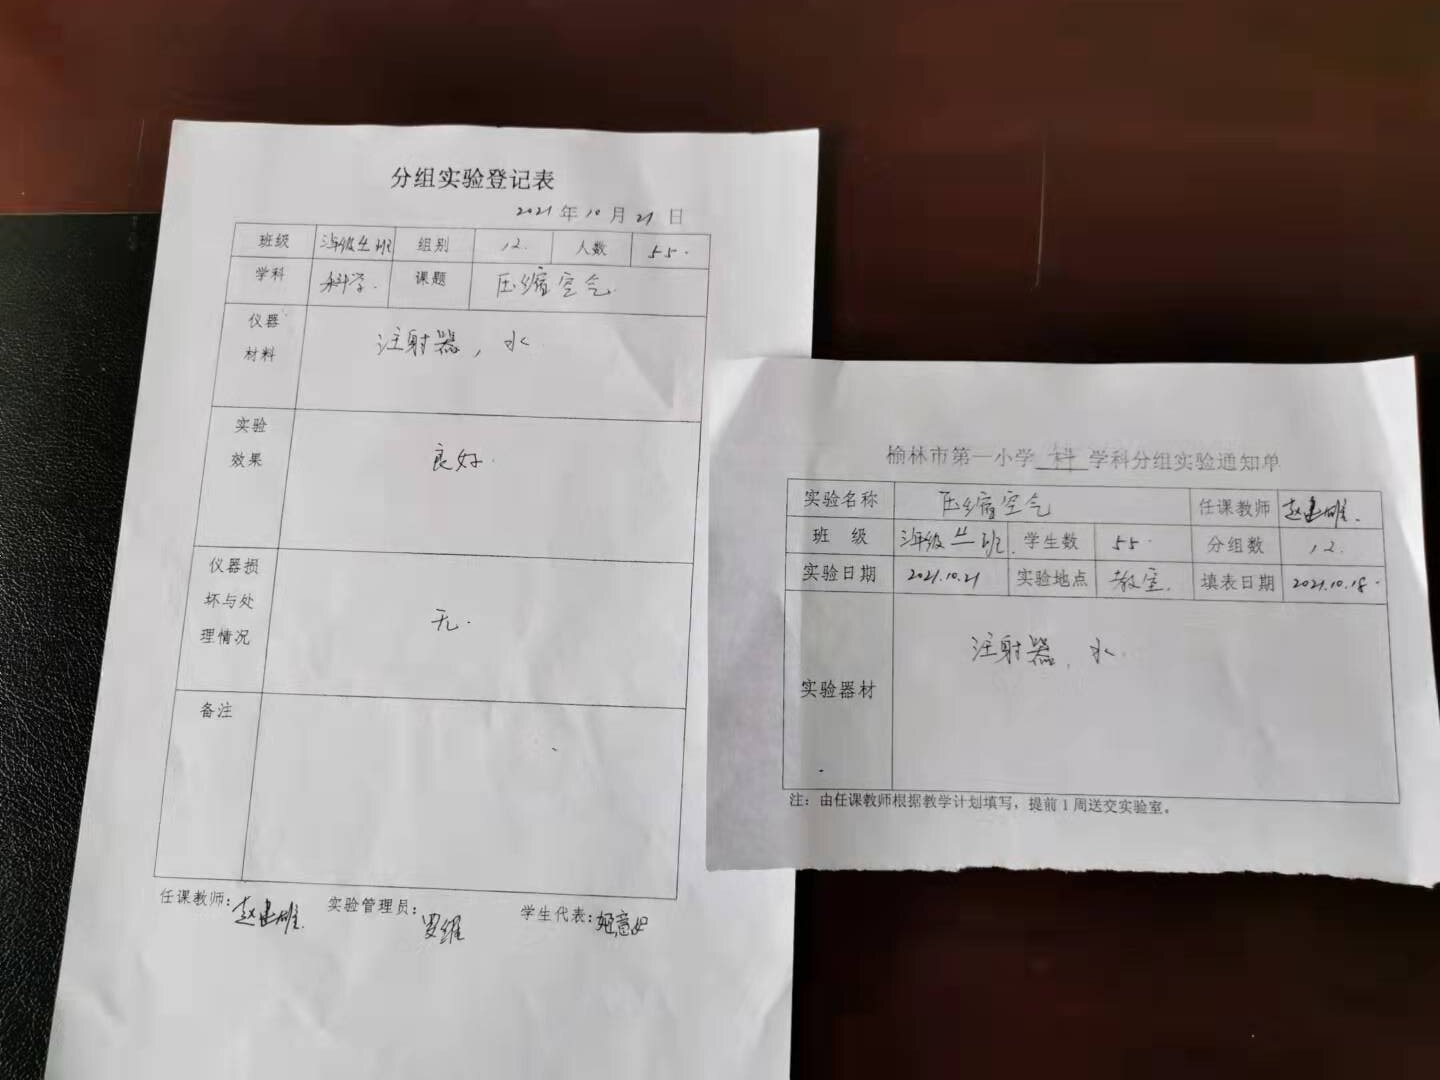 分组实验登记表
2021 年 10 月 21 日
班级 三年级七班 组别 12. 人数 55.
学科 科学. 课题 压缩空气.
仪器
材料
注射器，水
实验
效果
良好.
仪器损
坏与处
理情况
无.
备注
任课教师: 赵建雄. 实验管理员: 罗维 学生代表: 姬
榆林市第一小学 科 学科分组实验通知单
实验名称 压缩空气 任课教师 赵建雄.
班 级 三年级 班. 学生数 55. 分组数 12.
实验日期 2021.10.21 实验地点 教室. 填表日期 2021.10.18.
实验器材 注射器，水.
注：由任课教师根据教学计划填写，提前1周送交实验室。